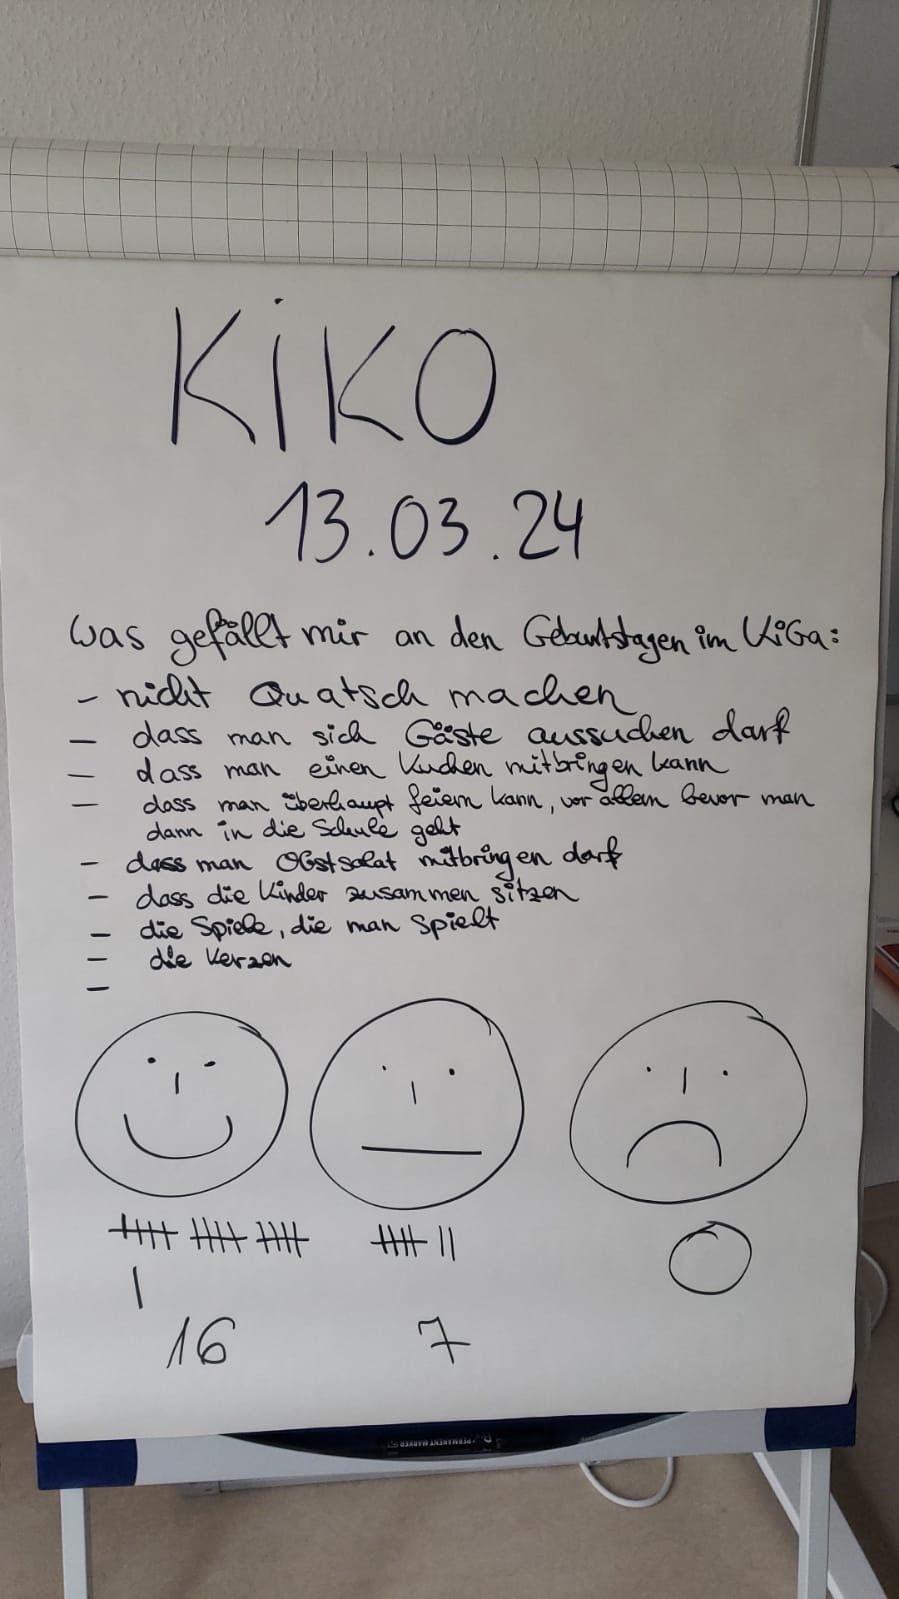 KiKO
13.03.24
Was gefällt mir an den Geburtstagen im KiGa:
- nicht Quatsch machen
- dass man sich Gäste aussuchen darf
- dass man einen Kuchen mitbringen kann
- dass man überhaupt feiern kann, vor allem bevor man
dann in die Schule geht
- dass man Obstsalat mitbringen darf
- dass die Kinder zusammen sitzen
- die Spiele, die man spielt
- die Kerzen
-
16 7
PERMANENT MARKER